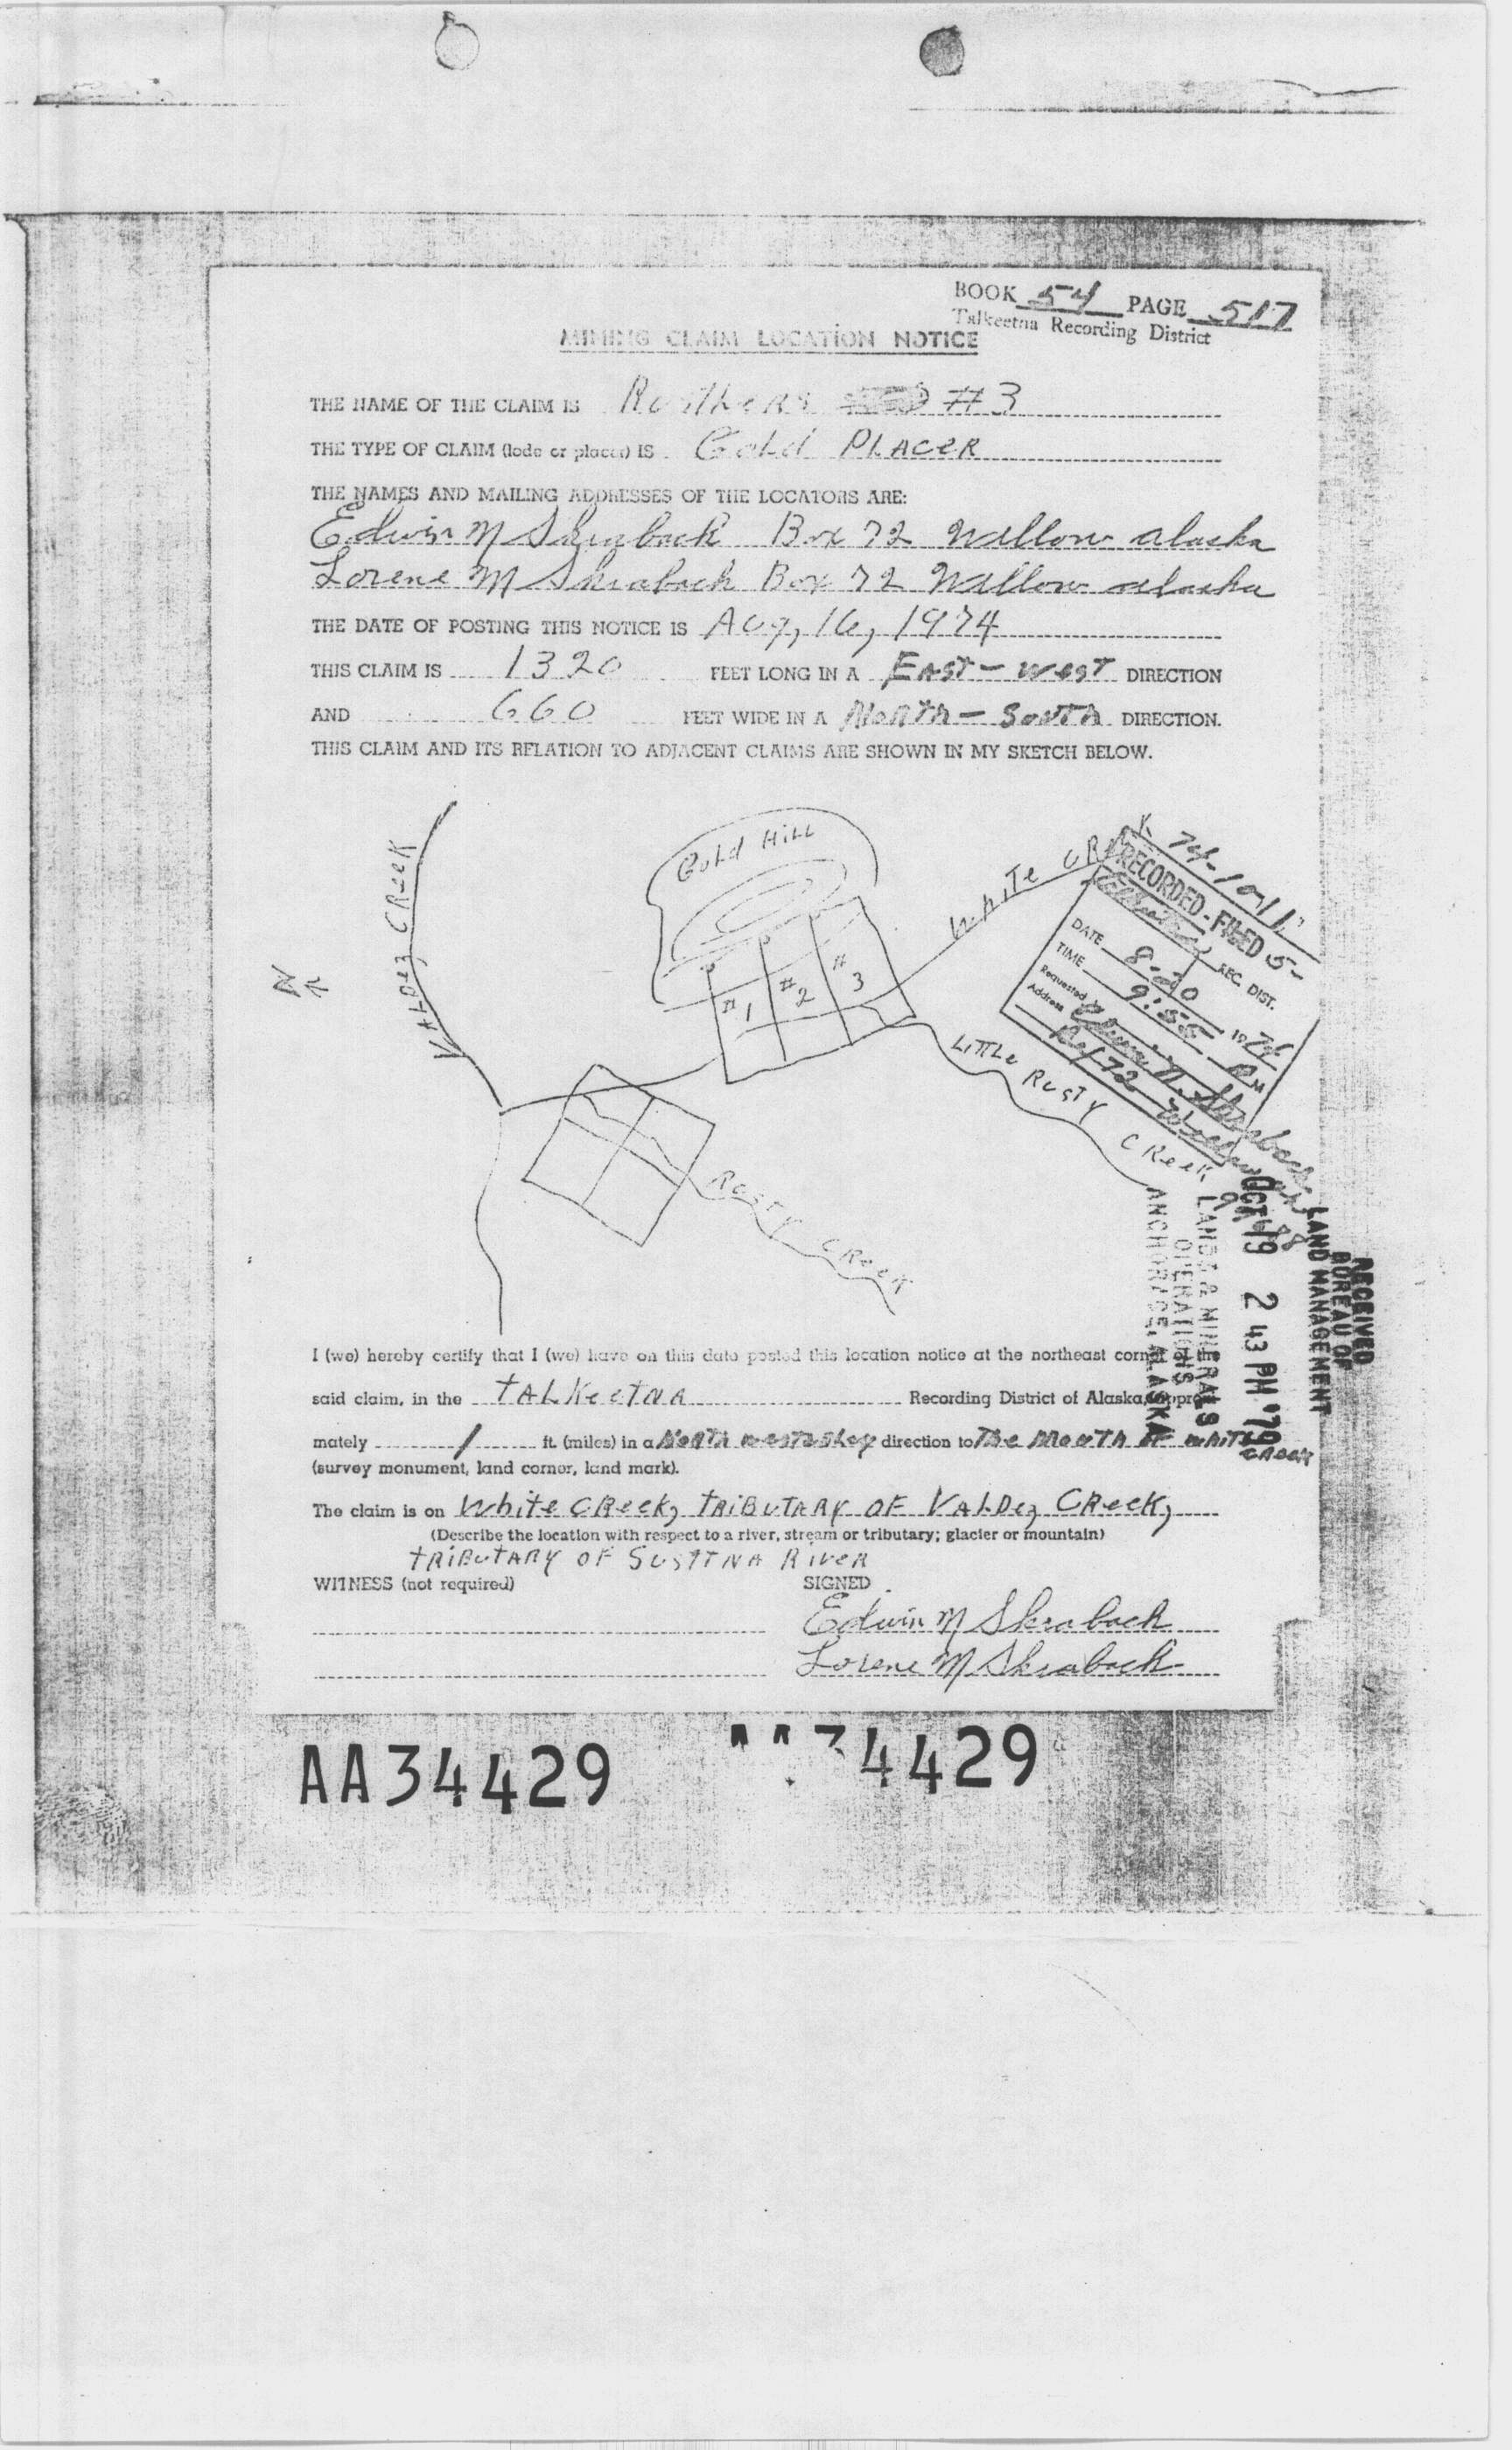 BOOK 54 PAGE 517
Talkeetna Recording District
MINING CLAIM LOCATION NOTICE
THE NAME OF THE CLAIM IS #3
THE TYPE OF CLAIM (lode or placer) IS Gold PLACER
THE NAMES AND MAILING ADDRESSES OF THE LOCATORS ARE:
Edwin M Skraback Box 72 Willow Alaska
Lorene M Skraback Box 72 Willow Alaska
THE DATE OF POSTING THIS NOTICE IS Aug, 16, 1974
THIS CLAIM IS 1320 FEET LONG IN A EAST - WEST DIRECTION
AND 660 FEET WIDE IN A NORTH - SOUTH DIRECTION.
THIS CLAIM AND ITS RELATION TO ADJACENT CLAIMS ARE SHOWN IN MY SKETCH BELOW.
Gold Hill
VALDEZ CReek
N
WhiTe CReeK
#1
#2
#3
LiTTLe RUSTY CReek
RUSTY CReek
RECORDED - FILED
REC. DIST.
DATE 8-20 1974
TIME 9:55 M
Requested by
Address
RECEIVED
BUREAU OF
LAND MANAGEMENT
OCT 19 2 43 PM '79
LANDS & MINERALS
OPERATIONS
ANCHORAGE, ALASKA
I (we) hereby certify that I (we) have on this date posted this location notice at the northeast corner of the
said claim, in the TALKeeTNA Recording District of Alaska, approxi-
mately 1 ft. (miles) in a direction to The MOUTH OF WhiTe CReek
(survey monument, land corner, land mark).
The claim is on White CReek, TRiBUTARY OF VALDez CReek,
(Describe the location with respect to a river, stream or tributary; glacier or mountain)
TRIBUTARY OF SUSITNA RIVeR
WITNESS (not required) SIGNED
Edwin M Skraback
Lorene M Skraback
AA34429
34429